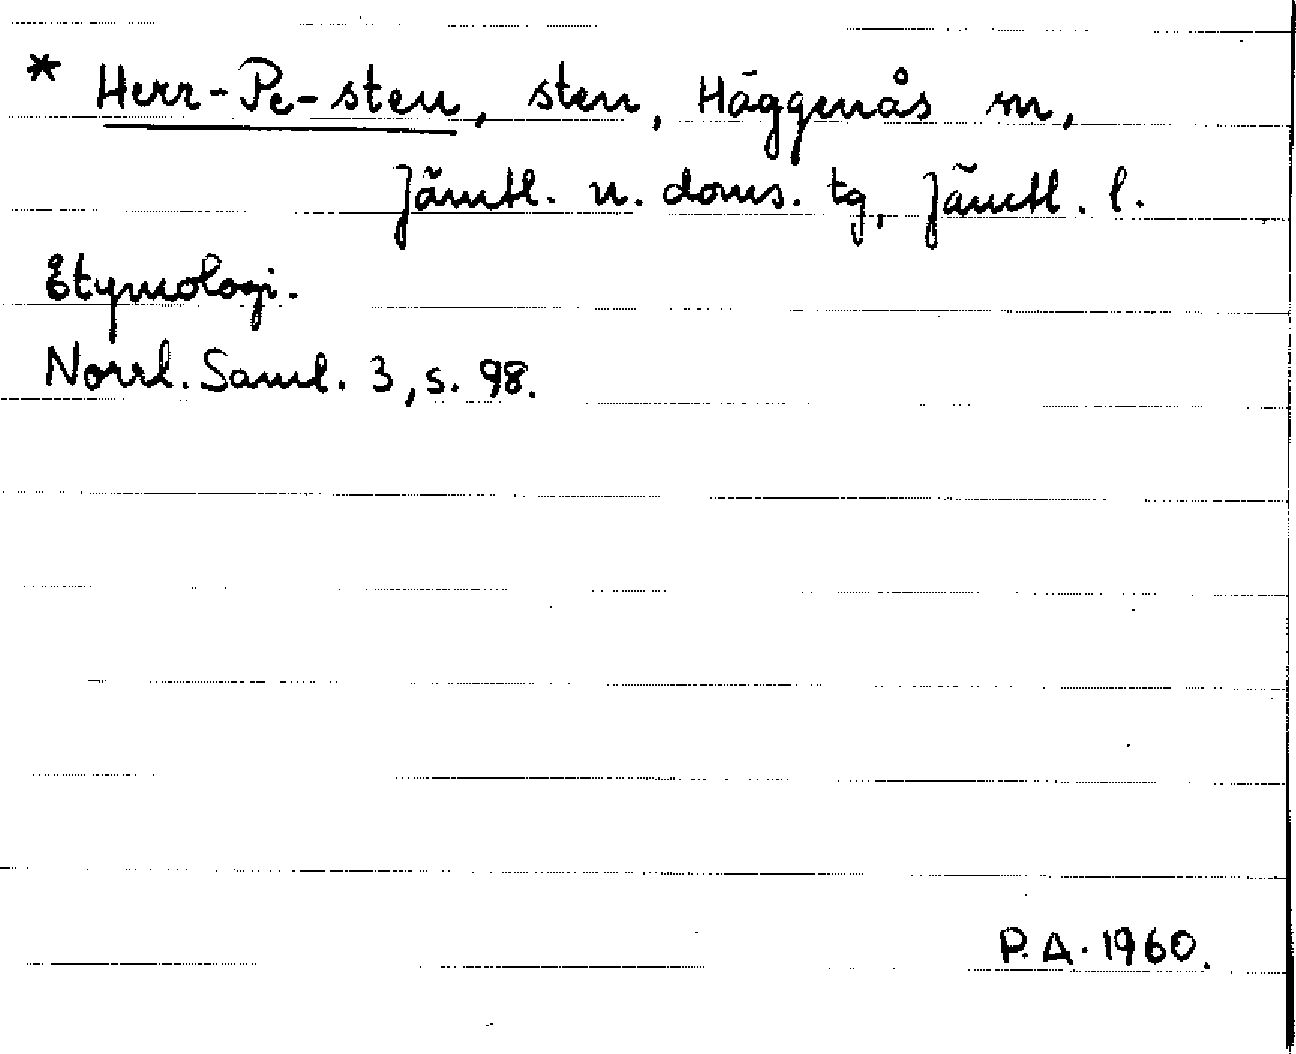 * Herr-Pe-sten, sten, Häggenås sn,
Jämtl. n. doms. tg, Jämtl. l.
Etymologi.
Norrl. Saml. 3, s. 98.
P.A. 1960.